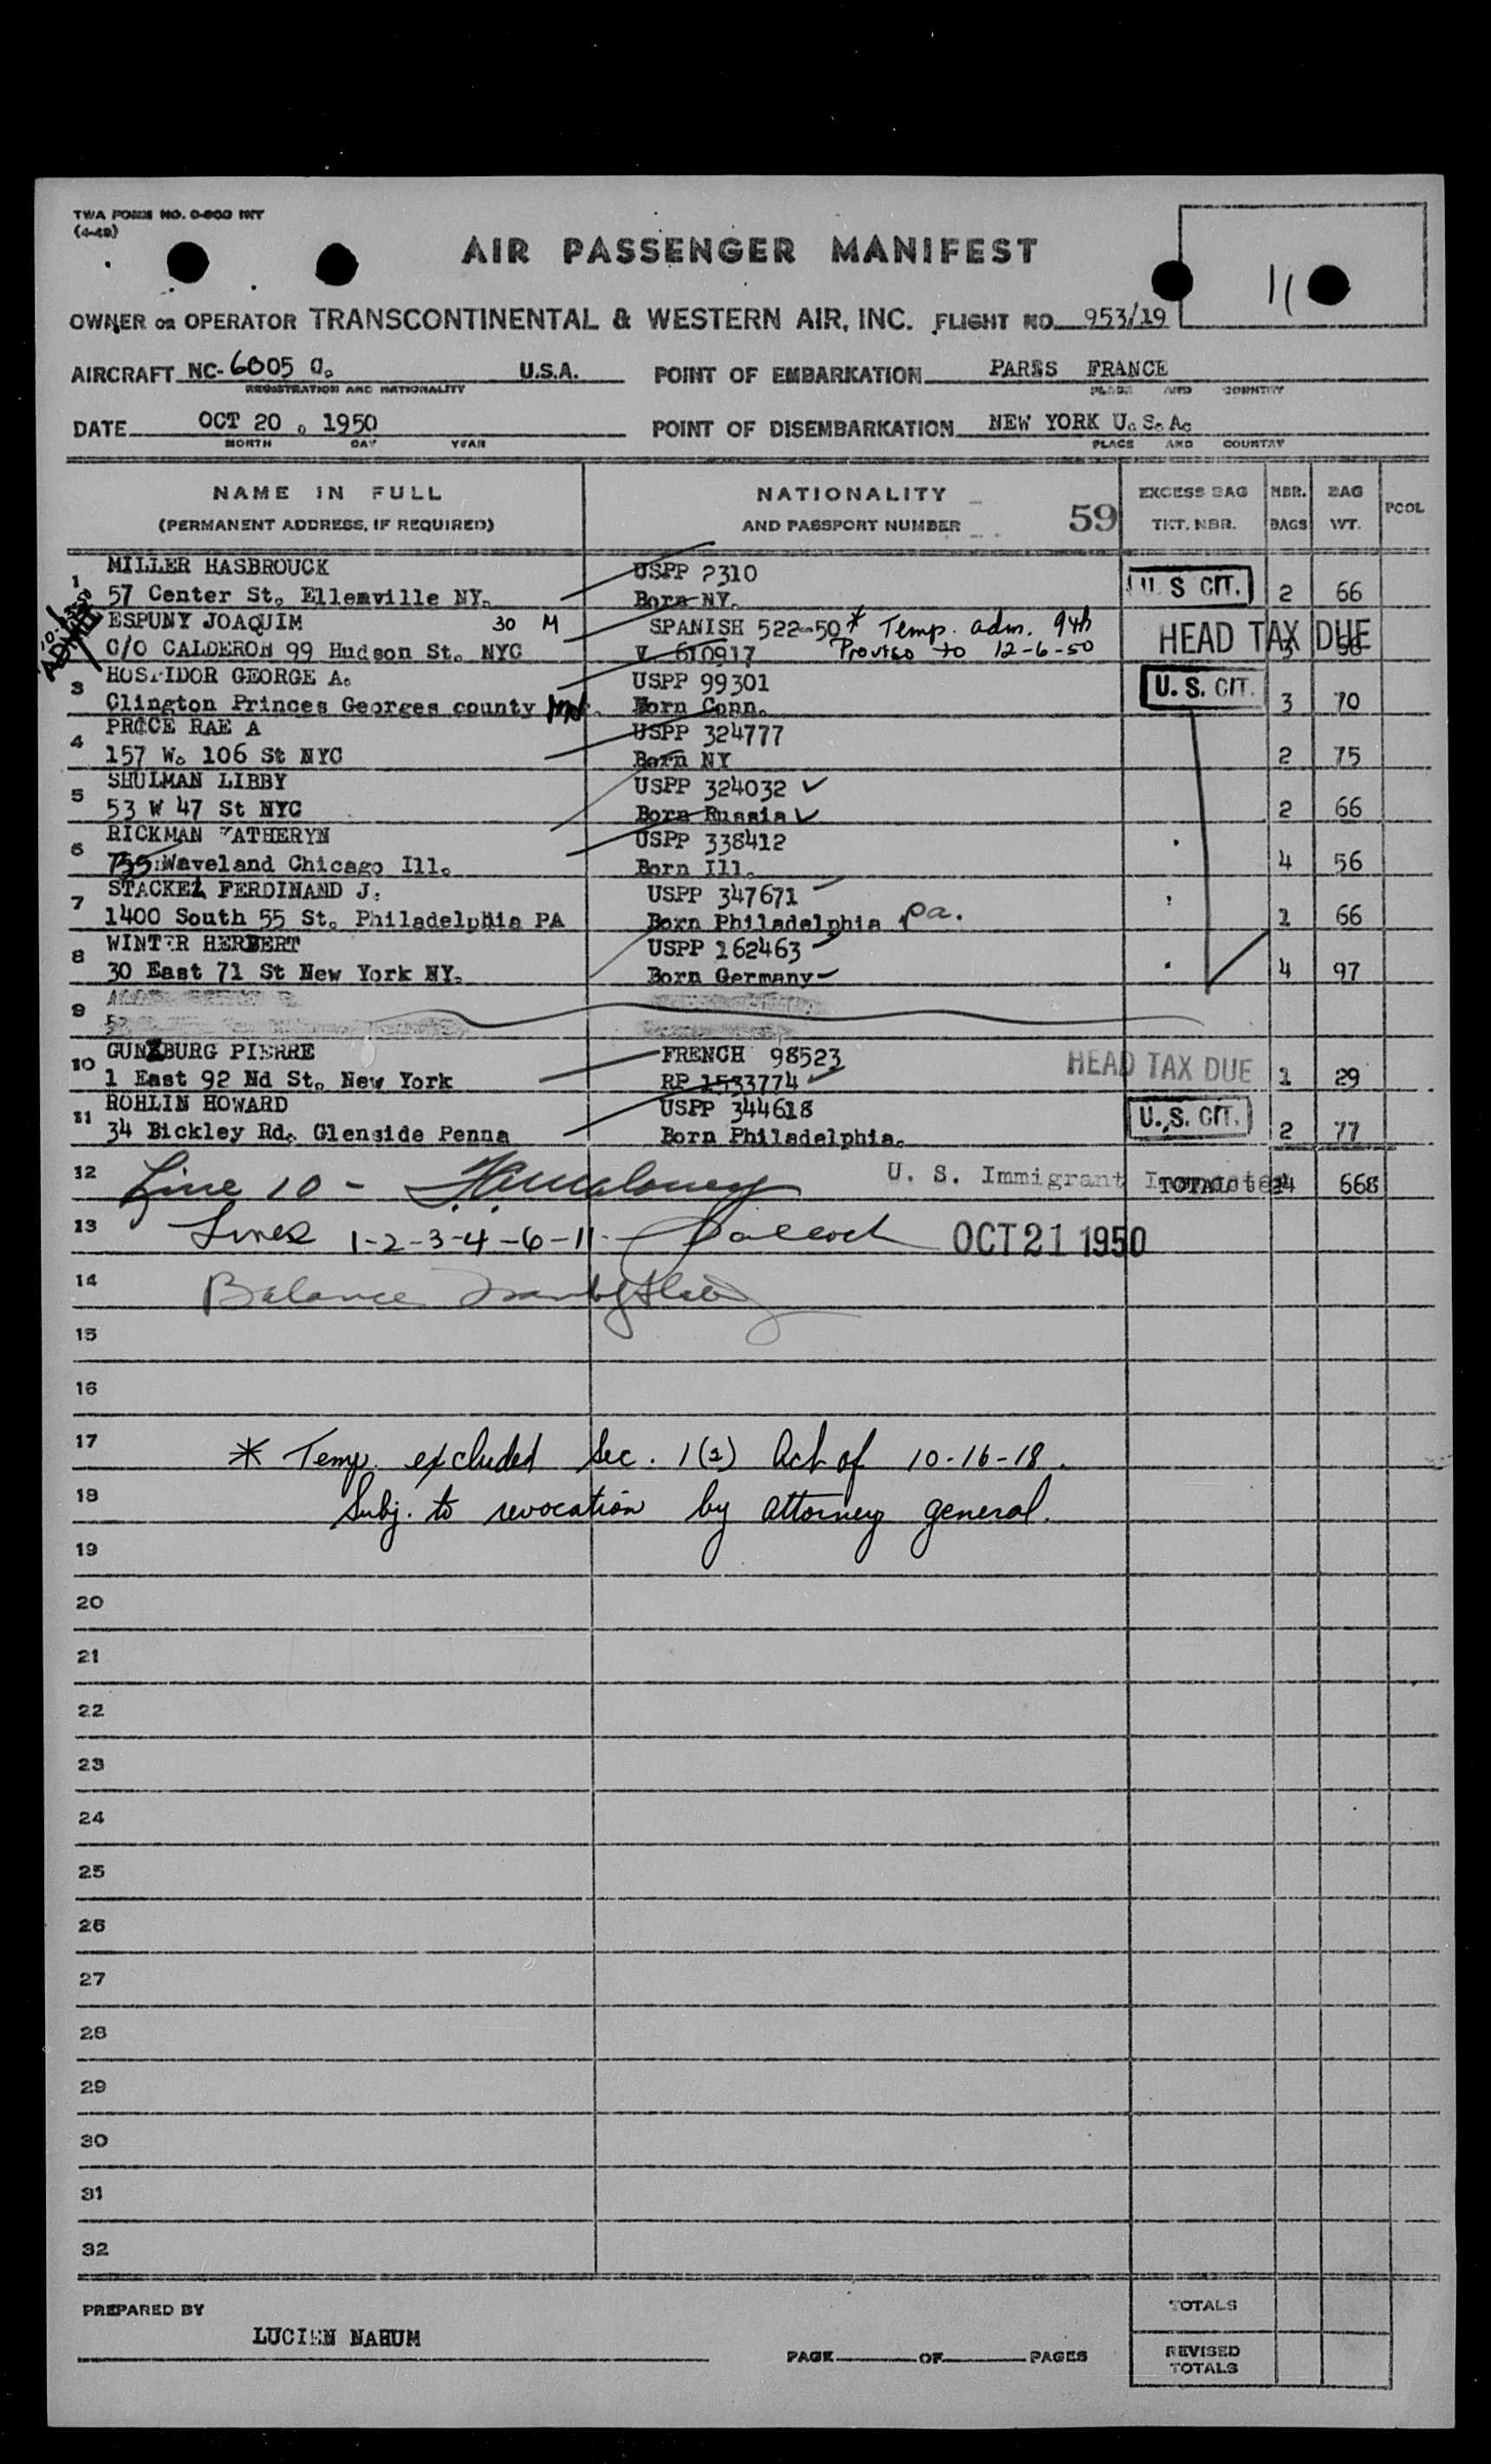 TWA FORM NO. O-800 INT
(4-48)
AIR PASSENGER MANIFEST
11
OWNER OR OPERATOR TRANSCONTINENTAL & WESTERN AIR, INC. FLIGHT NO. 953/19
AIRCRAFT NC-6005 C. U.S.A. POINT OF EMBARKATION PARIS FRANCE
REGISTRATION AND NATIONALITY PLACE AND COUNTRY
DATE OCT 20 . 1950 POINT OF DISEMBARKATION NEW YORK U.S.A.
MONTH DAY YEAR PLACE AND COUNTRY
NAME IN FULL NATIONALITY EXCESS BAG NBR. BAG POOL
(PERMANENT ADDRESS, IF REQUIRED) AND PASSPORT NUMBER 59 TKT. NBR. BAGS WT.
1 MILLER HASBROUCK USPP 2310
57 Center St. Ellenville NY. Born NY. U S CIT. 2 66
ADMITTED
ESPUNY JOAQUIM 30 M SPANISH 522-50 * Temp. adm. 9th
C/O CALDERON 99 Hudson St. NYC V 610917 Proviso to 12-6-50 HEAD TAX DUE 3
3 GEORGE A. USPP 99301
Clington Princes Georges county Md. Born Conn. U. S. CIT. 3 70
4 PRICE RAE A USPP 324777
157 W. 106 St NYC Born NY 2 75
5 SHULMAN LIBBY USPP 324032 ✓
53 W 47 St NYC Born Russia ✓ 2 66
6 RICKMAN KATHERYN USPP 338412
755 Waveland Chicago Ill. Born Ill. 4 56
7 STACKEL FERDINAND J. USPP 347671
1400 South 55 St. Philadelphia PA Born Philadelphia Pa. 1 66
8 WINTER HERBERT USPP 162463
30 East 71 St New York NY. Born Germany 4 97
9
10 GUNZBURG PIERRE FRENCH 98523
1 East 92 Nd St. New York RP 1533774 HEAD TAX DUE 1 29
11 ROHLIN HOWARD USPP 344618
34 Bickley Rd. Glenside Penna Born Philadelphia. U. S. CIT. 2 77
12 Line 10 - U. S. Immigrant Inspector TOTAL 24 668
13 Lines 1-2-3-4-6-11- OCT 21 1950
14 Balance
15
16
17 * Temp. excluded Sec. 1(2) Act of 10-16-18.
18 Subj. to revocation by attorney general.
19
20
21
22
23
24
25
26
27
28
29
30
31
32
PREPARED BY TOTALS
LUCIEN NAHUM
PAGE OF PAGES REVISED TOTALS